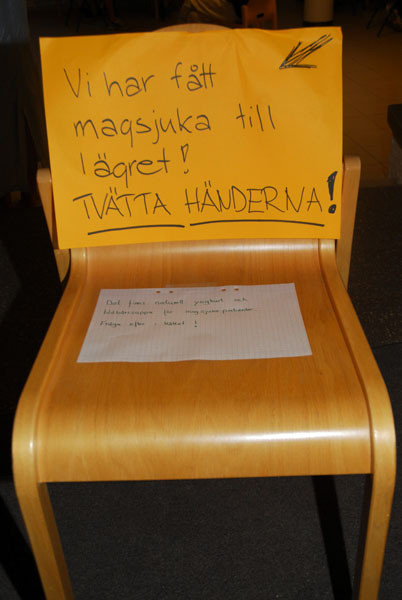 Vi har fått
magsjuka till
lägret!
TVÄTTA HÄNDERNA!
Det finns naturell yoghurt och
blåbärssoppa för magsjuke patienter
Fråga efter i köket!